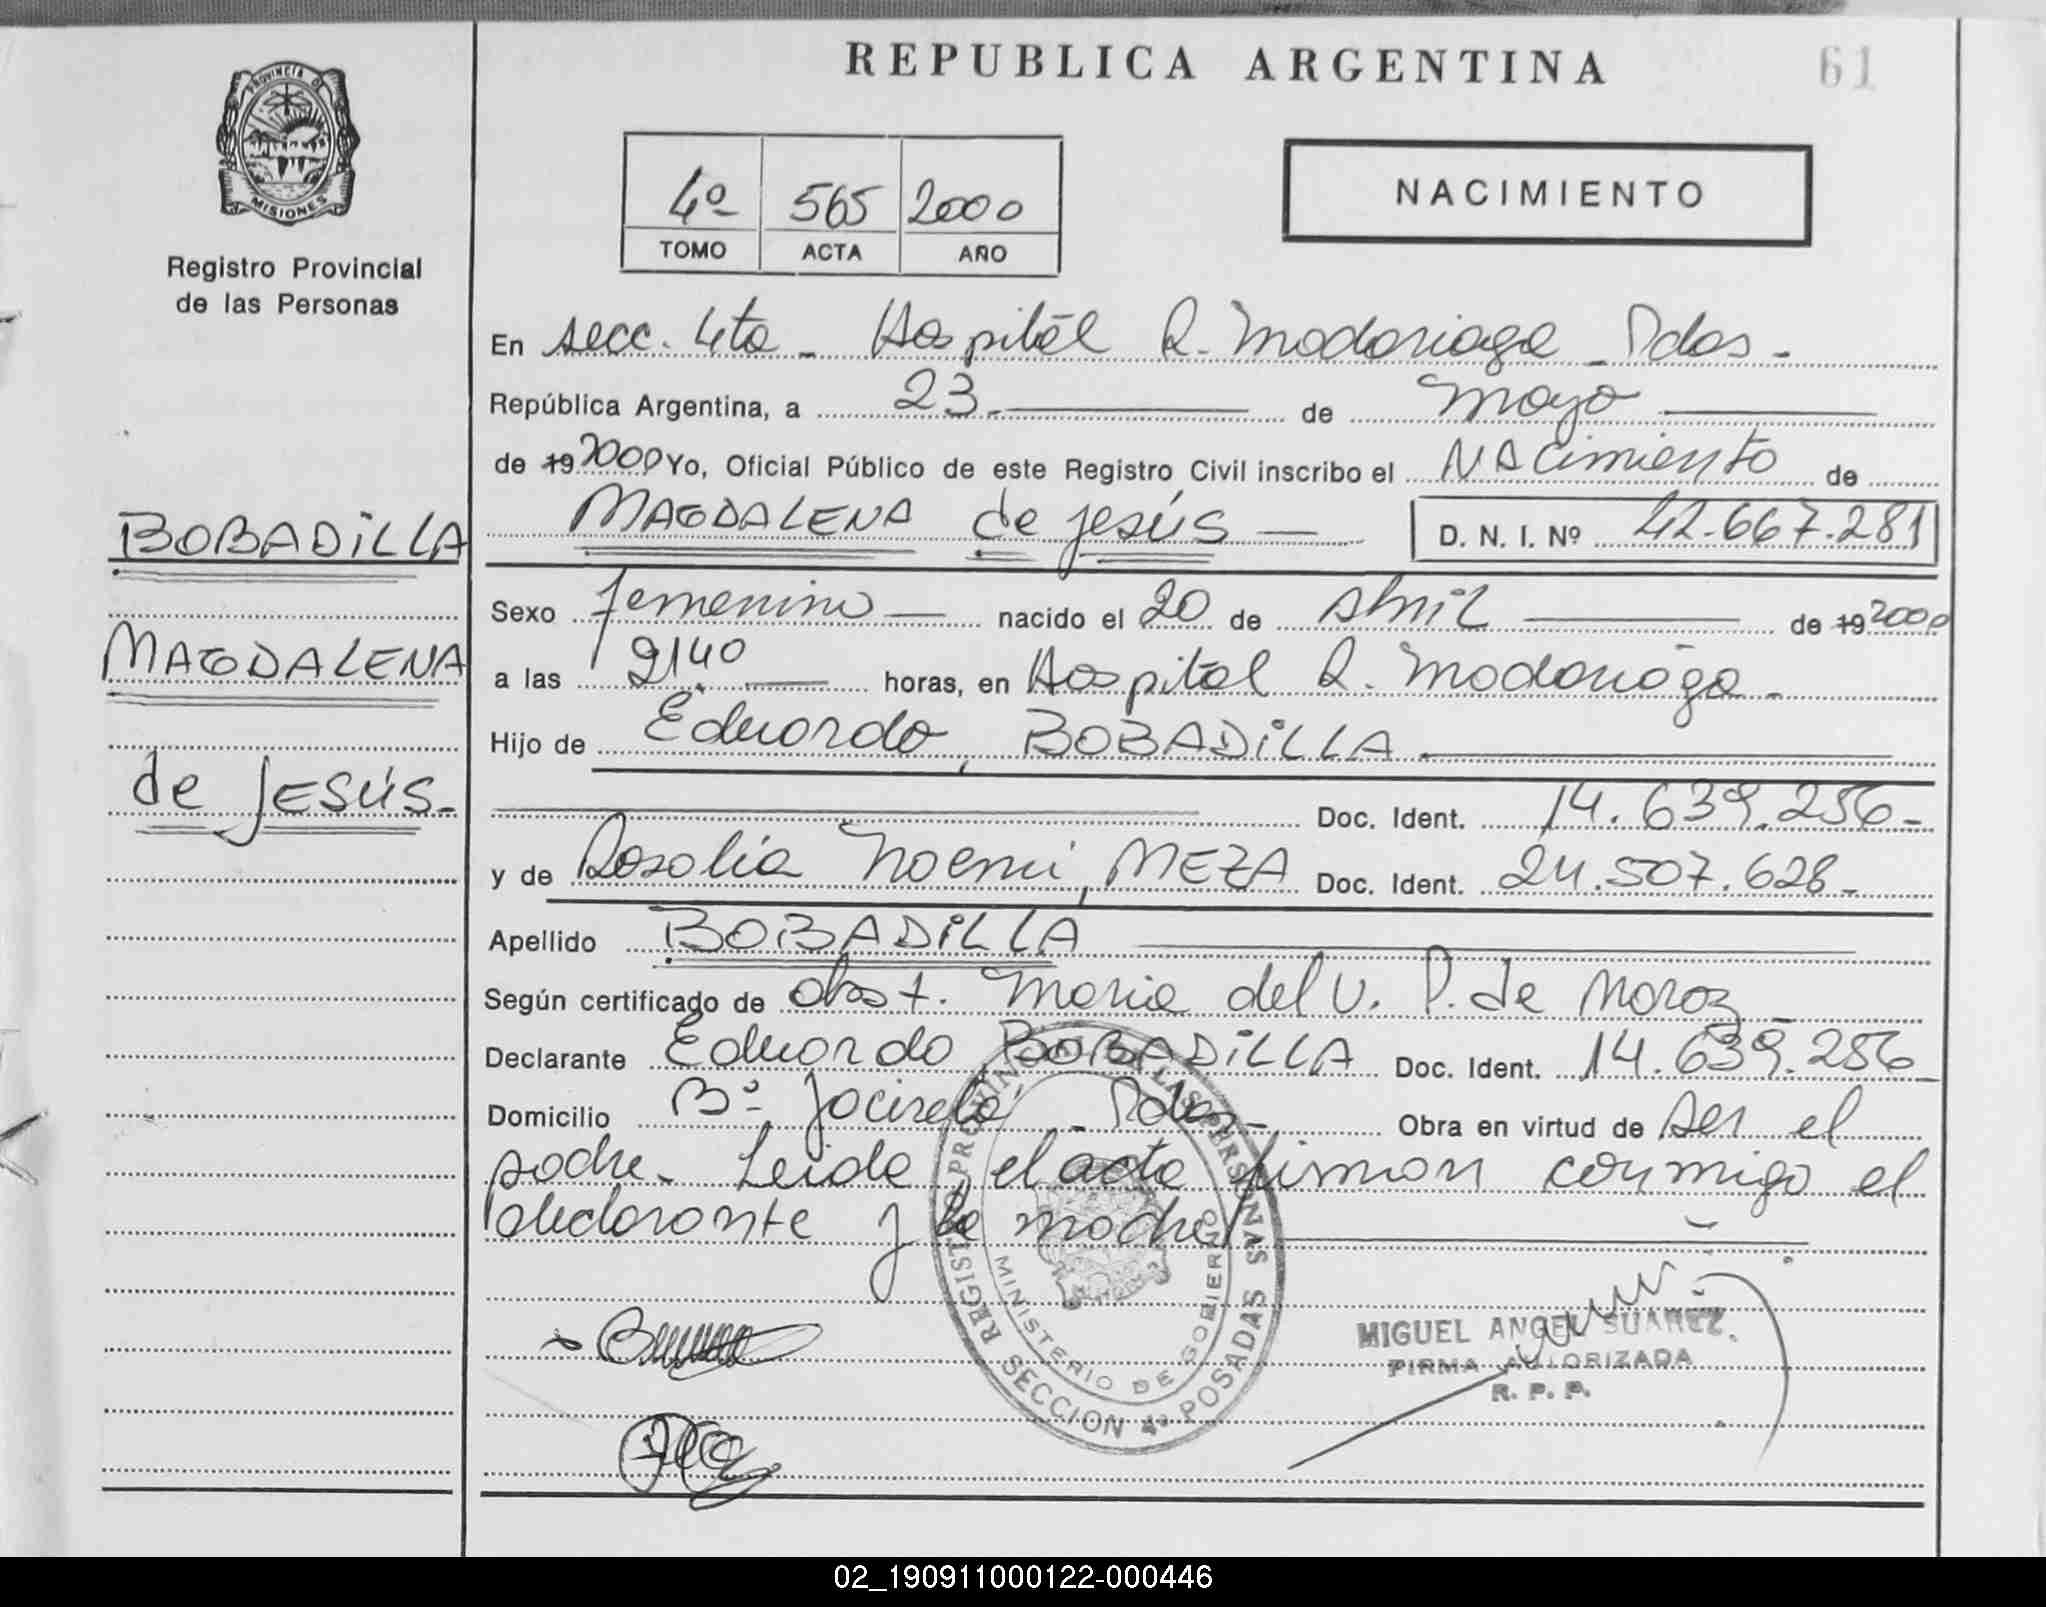 REPUBLICA ARGENTINA
61
PROVINCIA DE
MISIONES
Registro Provincial
de las Personas
4º 565 2000
TOMO ACTA AÑO
NACIMIENTO
En secc. 4ta - Hospital R. Madariaga - Pdas -
República Argentina, a 23 de mayo
de 19 2000 Yo, Oficial Público de este Registro Civil inscribo el NAcimiento de
MAGDALENA de jesús D. N. I. Nº 42.667.281
BOBADiLLA
MAGDALENA
de JESÚS.-
Sexo femenino nacido el 20 de Abril de 19 2000
a las 2140 horas, en Hospital R. Madariaga -
Hijo de Eduardo, BOBADiLLA
Doc. Ident. 14.639.256-
y de Rosalia Noemi, MEZA Doc. Ident. 24.507.628-
Apellido BOBADiLLA
Según certificado de obst. Maria del V. P. de Noroz
Declarante Eduardo BOBADiLLA Doc. Ident. 14.639.256
Domicilio Bº Pdas - Obra en virtud de ser el
padre. Leida el acta firman conmigo el
declarante y la madre
REGISTRO PROVINCIAL DE LAS PERSONAS
MINISTERIO DE GOBIERNO
SECCION 4ª POSADAS
MIGUEL ANGEL SUAREZ
FIRMA AUTORIZADA
R. P. P.
02_190911000122-000446